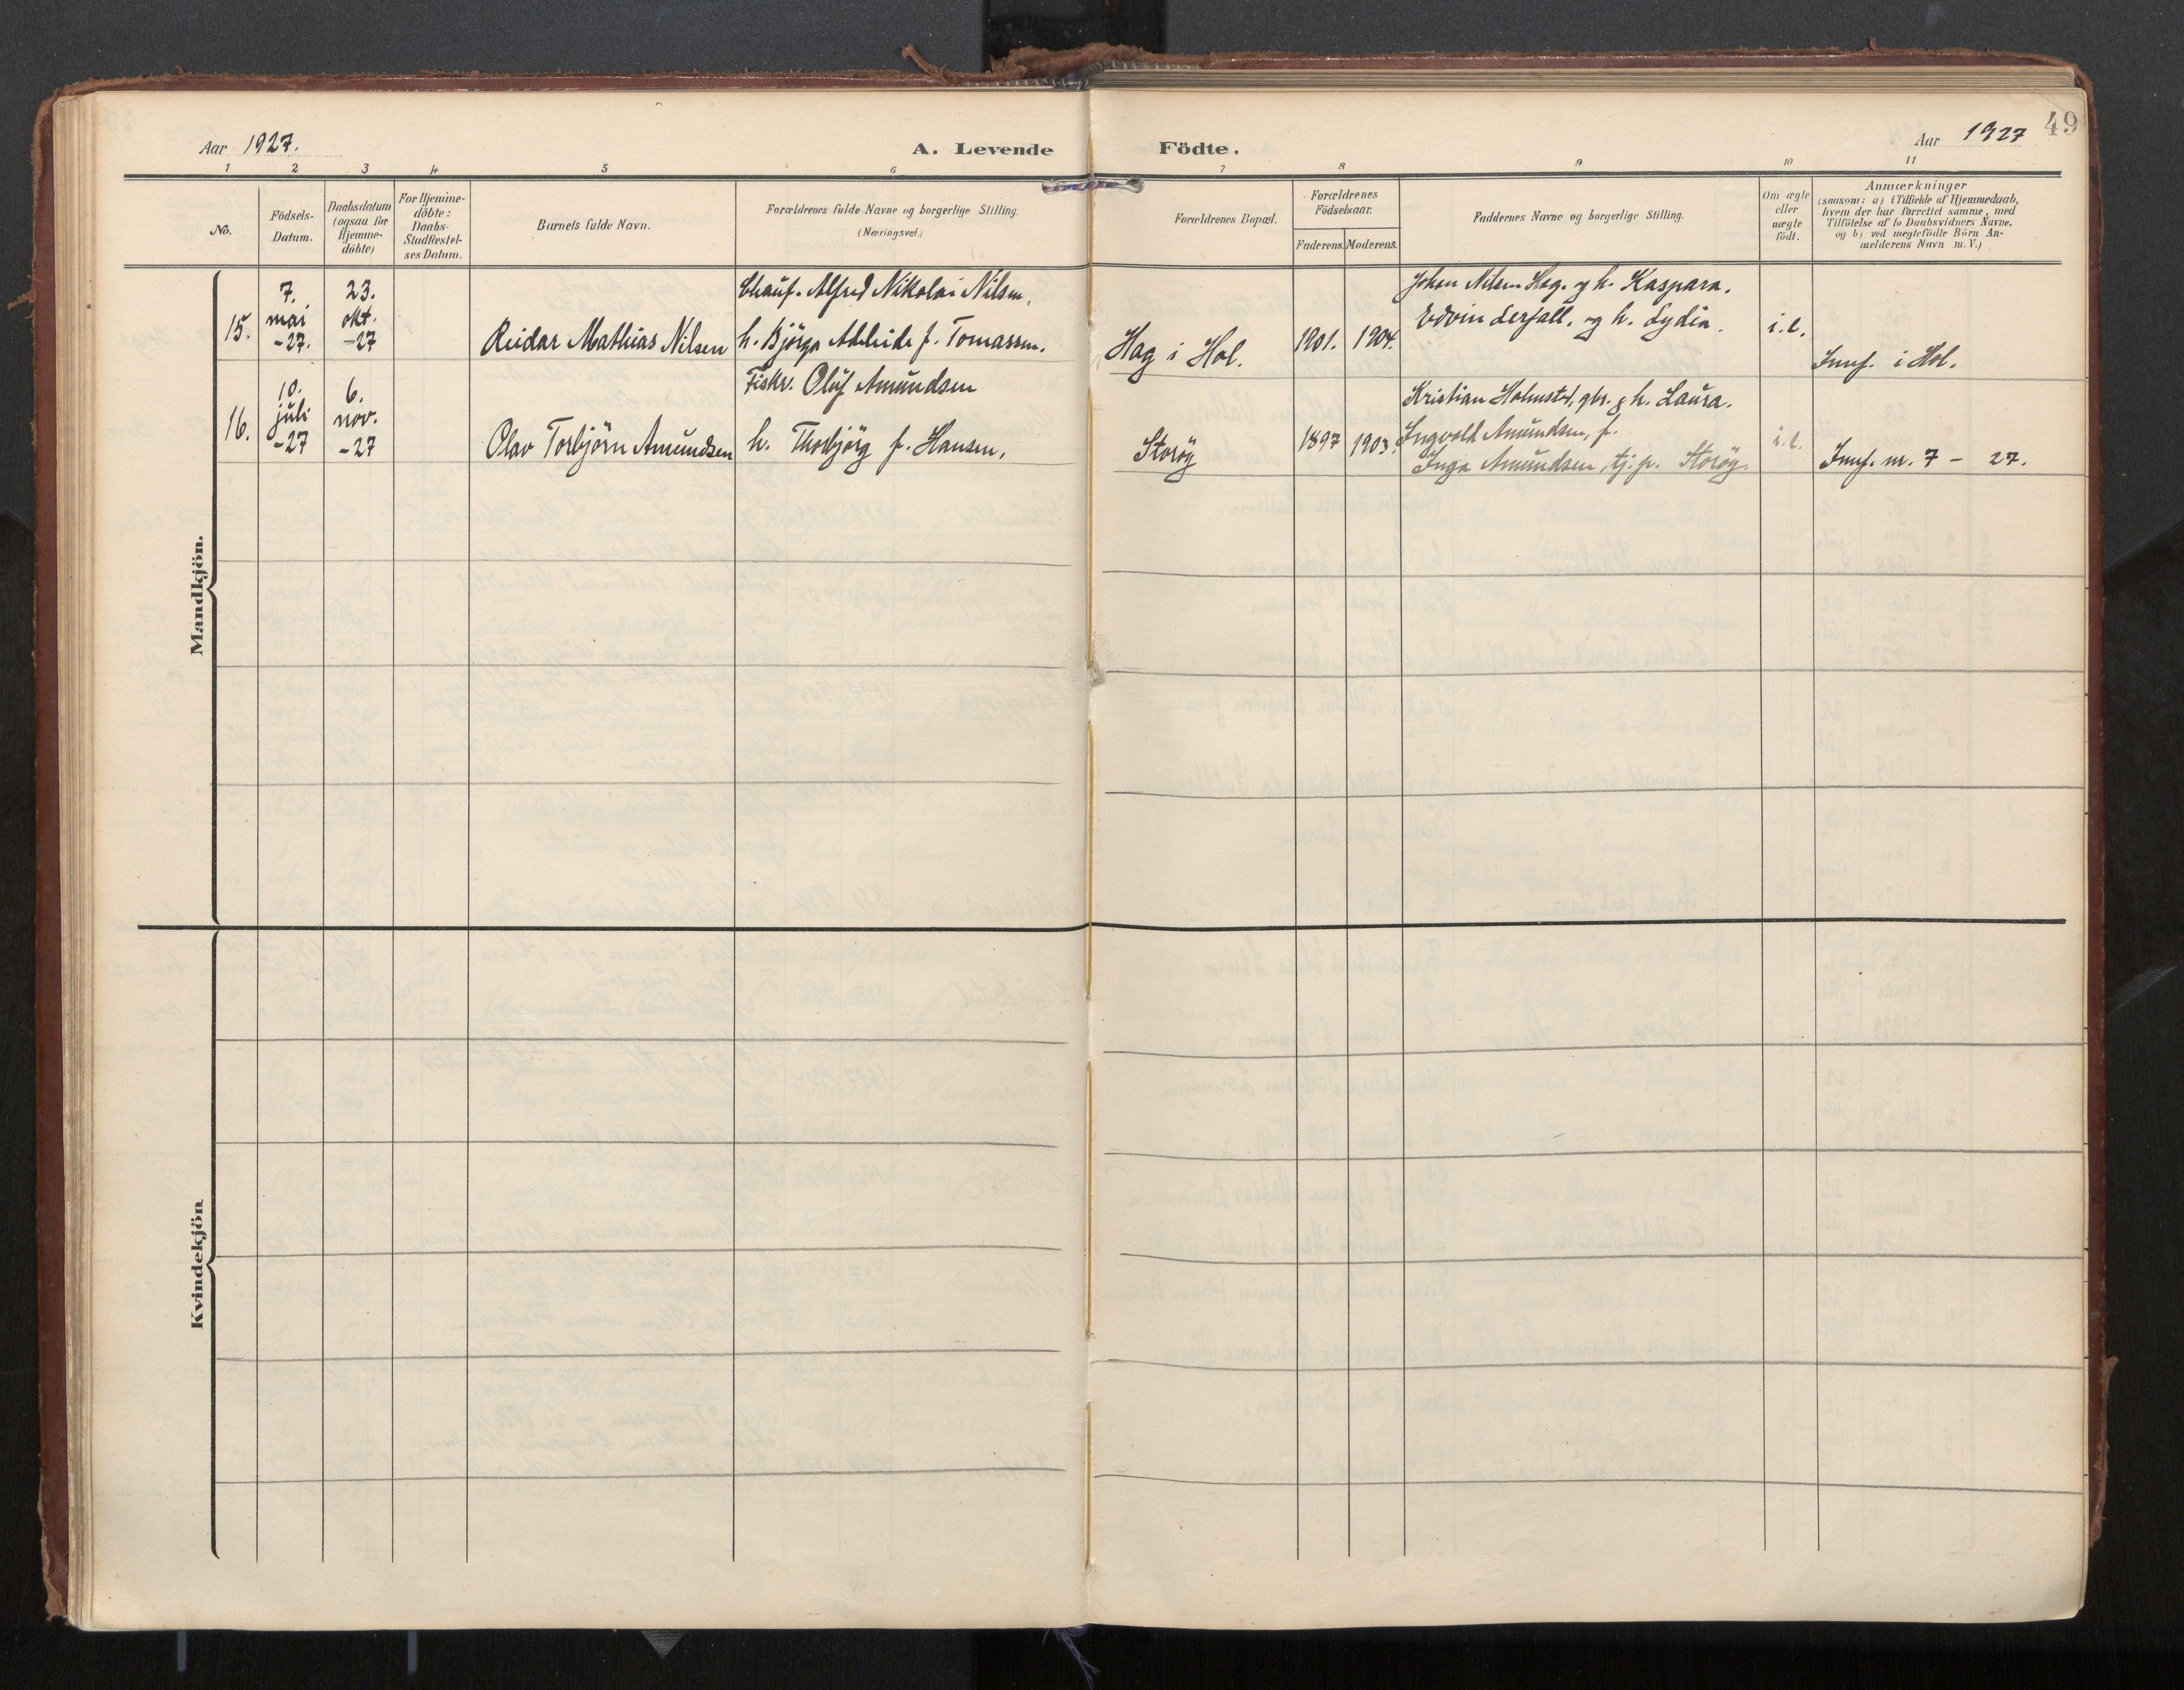 49
Aar 1927.
A. Levende Födte.
Aar 1927
1 2 3 4 5 6 7 8 9 10 11
No.
Födsels-
Datum.
Daabsdatum
(ogsaa for
Hjemme-
döbte)
For Hjemme-
döbte:
Daabs-
Stadfæstel-
ses Datum.
Barnets fulde Navn.
Forældrenes fulde Navne og borgerlige Stilling.
(Næringsvei.)
Forældrenes Bopæl.
Forældrenes
Födselsaar.
Faderens. Moderens.
Faddernes Navne og borgerlige Stilling.
Om ægte
eller
uægte
födt.
Anmærkninger
(saasom: a) i Tilfælde af Hjemmedaab,
hvem der har forrettet samme, med
Tilföielse af to Daabsvidners Navne,
og b) ved uægtefödte Börn An-
melderens Navn m. V.)
Mandkjön.
15.
7.
mai
-27.
23.
okt.
-27
Reidar Mathias Nilsen
Chauf. Alfred Nikolai Nilsen,
h. Björga Adeleide f. Tomassen.
Hag i Hol.
1901. 1904.
Johan Nilsen Hag. og h. Kaspara.
Edvin Lerfall. og h. Lydia.
i.e.
Innf. i Hol.
16.
10.
juli
-27
6.
nov.
-27
Olav Torbjörn Amundsen
Fisker. Oluf Amundsen
h. Thorbjörg f. Hansen.
Storöy
1897 1903.
Kristian Holmstad, gbr. & h. Laura.
Ingvald Amundsen, f.
Inga Amundsen, tj.p. Storöy.
i.e.
Innf. nr. 7 - 27.
Kvindekjön